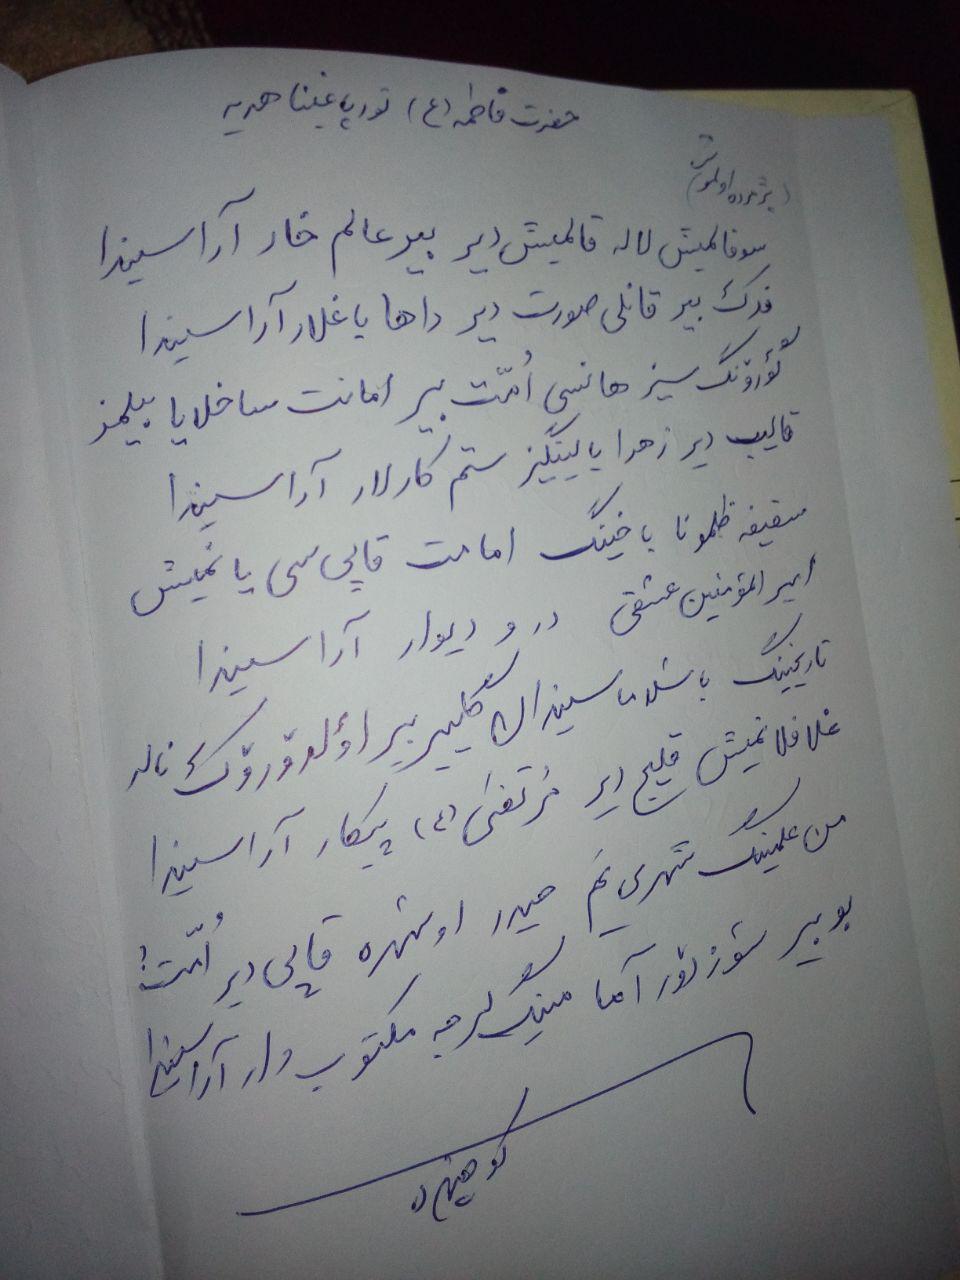 حضرت فاطمه (ع) تورپاغینا هدیه
(پژمرده اولموش)
سوفالمیش لاله قالمیش دیر بیر عالم خار آراسیندا
فدک بیر قانلی صورت دیر داها یاغلار آراسیندا
گؤرۆنگ سیز هانسی اُمّت بیر امانت ساخلایا بیلمز
قالیب دیر زهرا یالینگیز ستم کارلار آراسیندا
سقیفه ظلمونا باخینگ امامت قاپی سی یانمیش
امیرالمؤمنین عشقی در و دیوار آراسیندا
تاریخینگ باشلاماسیندان گلیر بیر اؤلدۆرۆک ناله
غلافلانمیش قلیچ دیر مُرتضیٰ (ع) پیکار آراسیندا
من علمینگ شهری یَم حیدر اوشهره قاپی دیر اُمّت!
بو بیر سؤزدۆر آما مینگ لرجه مکتوب وار آراسیندا